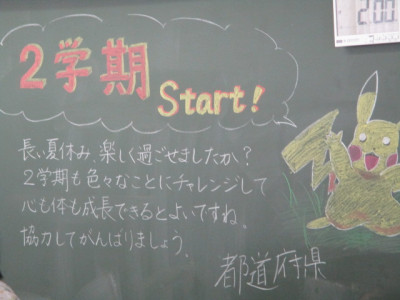 2:00
2学期
Start!
長い夏休み、楽しく過ごせましたか？
2学期も色々なことにチャレンジして
心も体も成長できるとよいですね。
協力してがんばりましょう。
都道府県